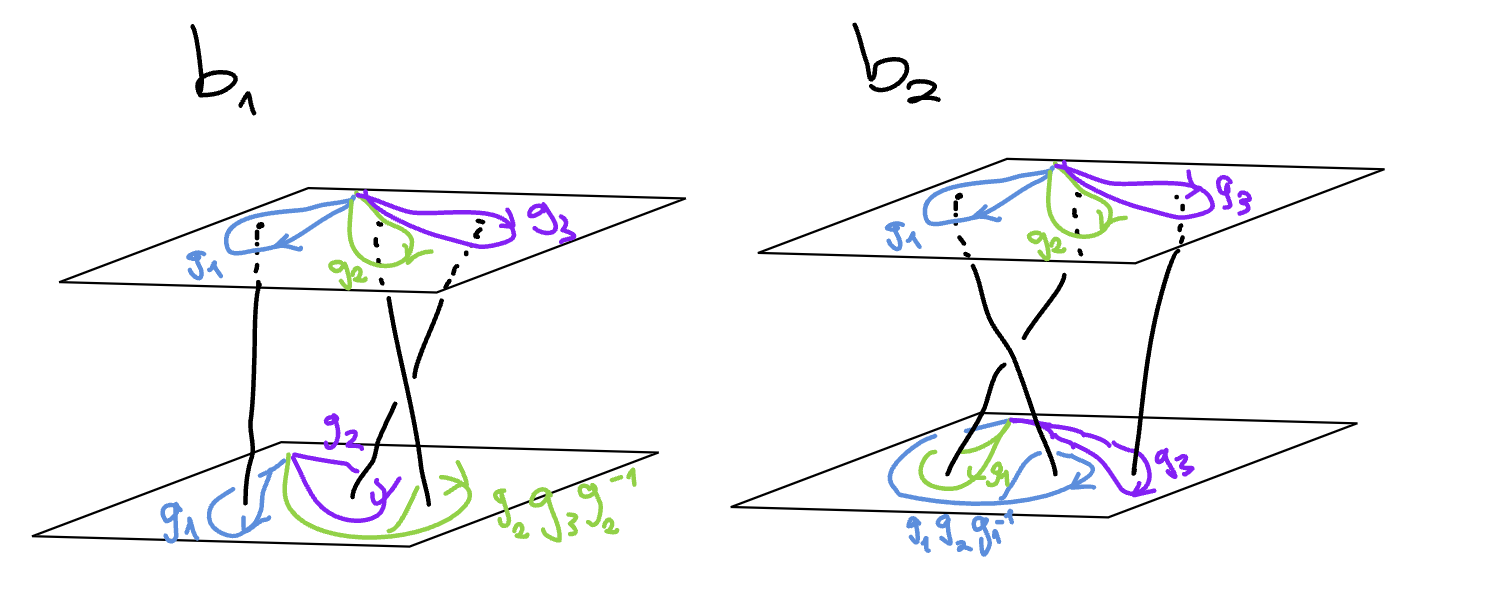 b₁
b₂
g₁
g₂
g₃
g₁
g₂
g₃
g₂
g₁
g₂g₃g₂⁻¹
g₁
g₃
g₁g₂g₁⁻¹